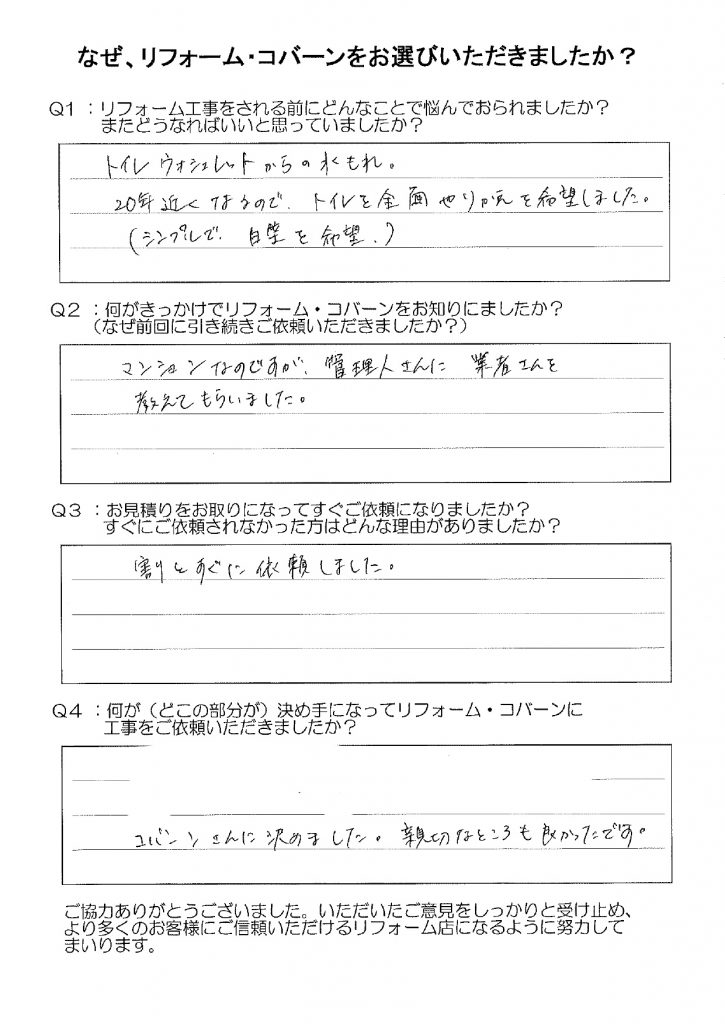 なぜ、リフォーム・コバーンをお選びいただきましたか？
Q1：リフォーム工事をされる前にどんなことで悩んでおられましたか？
またどうなればいいと思っていましたか？
トイレウォシュレットからの水もれ。
20年近くなるので、トイレを全面やりかえを希望しました。
(シンプルで、白壁を希望。)
Q2：何がきっかけでリフォーム・コバーンをお知りにましたか？
（なぜ前回に引き続きご依頼いただきましたか？）
マンションなのですが、管理人さんに 業者さんを
教えてもらいました。
Q3：お見積りをお取りになってすぐご依頼になりましたか？
すぐにご依頼されなかった方はどんな理由がありましたか？
割とすぐに依頼しました。
Q4：何が（どこの部分が）決め手になってリフォーム・コバーンに
工事をご依頼いただきましたか？
コバーンさんに決めました。親切なところも良かったです。
ご協力ありがとうございました。いただいたご意見をしっかりと受け止め、
より多くのお客様にご信頼いただけるリフォーム店になるように努力して
まいります。